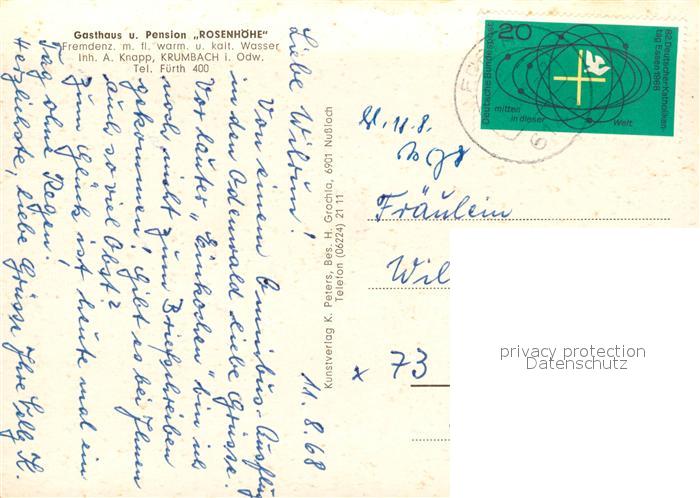 Gasthaus u. Pension „ROSENHÖHE"
Fremdenz. m. fl. warm. u. kalt. Wasser
Inh. A. Knapp, KRUMBACH i. Odw.
Tel. Fürth 400
11.8.68
Liebe Wiltrun!
Von einem Omnibus-Ausflug
in den Odenwald liebe Grüsse.
Vor lauter „Einkochen" bin ich
noch nicht zum Briefschreiben
gekommen! Gibt es bei Ihnen
auch so viel Obst?
Zum Glück ist heute mal ein
Tag ohne Regen!
Herzlichste, liebe Grüsse Ihre K.
Kunstverlag K. Peters, Bes. H. Grochla, 6901 Nußloch
Telefon (06224) 21 11
Deutsche Bundespost
20
82. Deutscher Katholiken-
tag Essen 1968
mitten
in dieser
Welt
11.8.
Fräulein
Wil
x 73
privacy protection
Datenschutz